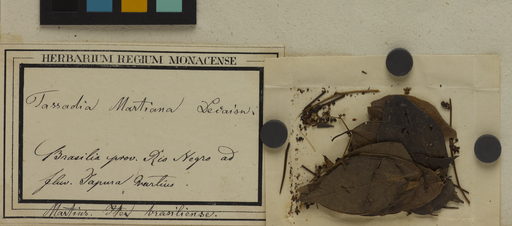 HERBARIUM REGIUM MONACENSE
Tassadia Martiana Decaisn.
Brasilia prov. Rio Negro ad
fluv. Japura Martius.
Martius. Iter brasiliense.